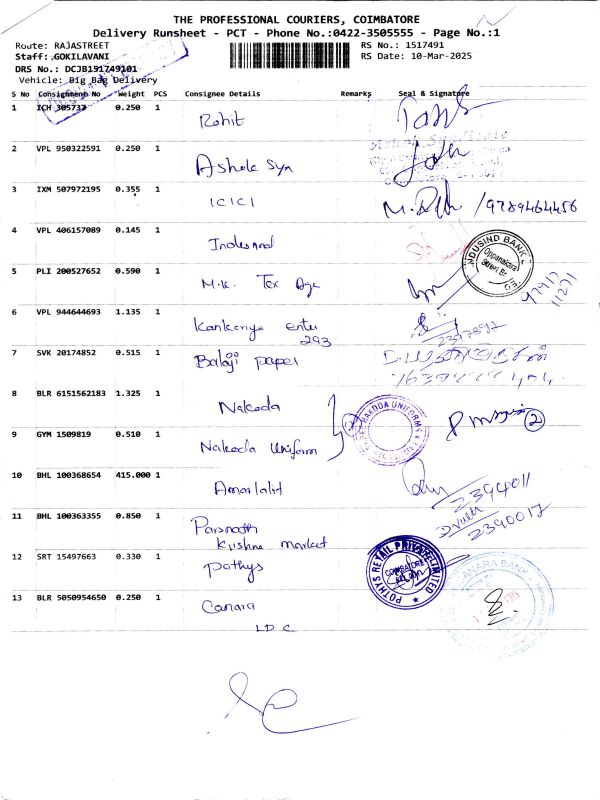 THE PROFESSIONAL COURIERS, COIMBATORE
Delivery Runsheet - PCT - Phone No.:0422-3505555 - Page No.:1
Route: RAJASTREET RS No.: 1517491
Staff: GOKILAVANI RS Date: 10-Mar-2025
DRS No.: DCJB151749101
Vehicle: Big Bag Delivery
S No Consignment No Weight PCS Consignee Details Remarks Seal & Signature
1 ICH 305737 0.250 1 Rohit
2 VPL 950322591 0.250 1 Ashok Syn
3 IXM 507972195 0.355 1 ICICI /9789464456
4 VPL 406157089 0.145 1 Indesand
INDUSIND BANK
Oppanakara
Street Br.
5 PLI 200527652 0.590 1 M.K. Tex Dye
6 VPL 944644693 1.135 1 Kankariya enter
293
7 SVK 20174852 0.515 1 Balaji paper
8 BLR 6151562183 1.325 1 Nakoda
NAKODA UNIFORMS
2
9 GYM 1509819 0.510 1 Nakoda Uniform
10 BHL 100368654 415.000 1 Amarlalit
2394011
11 BHL 100363355 0.850 1 Parsnath
Krishna market
2390017
12 SRT 15497663 0.330 1 Pothys
POTHYS RETAIL PRIVATE LIMITED
COIMBATORE
13 BLR 5050954650 0.250 1 Canara
LDC
CANARA BANK